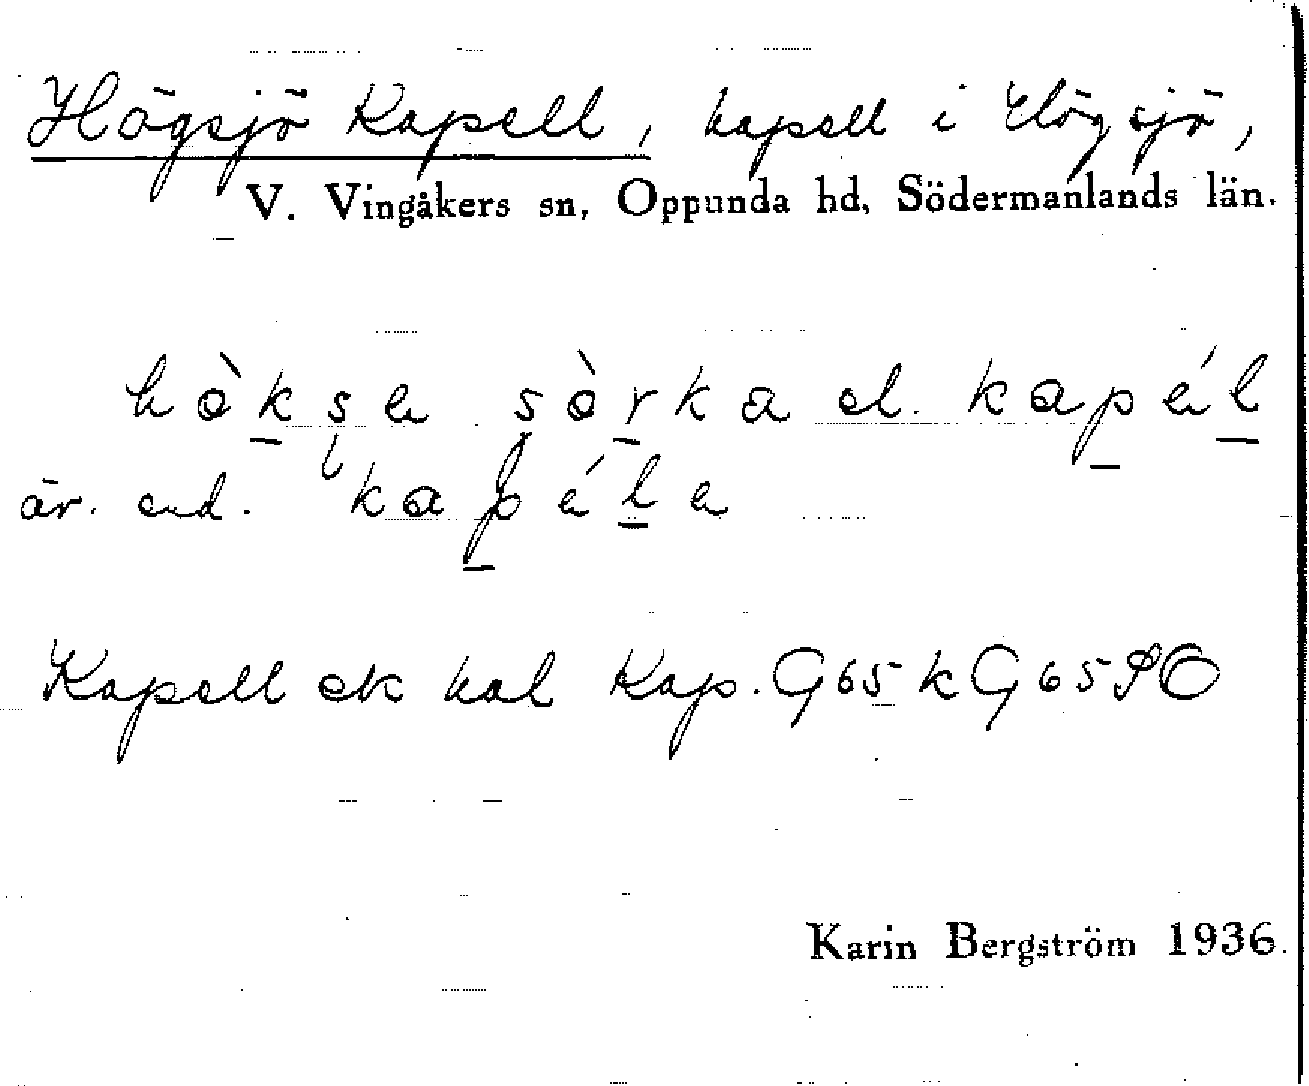 Högsjö Kapell, kapell i Högsjö,
V. Vingåkers sn, Oppunda hd, Södermanlands län.
kapél
äv. end. kapéle
Kapell ek kal Kap. G65 k G65
Karin Bergström 1936.